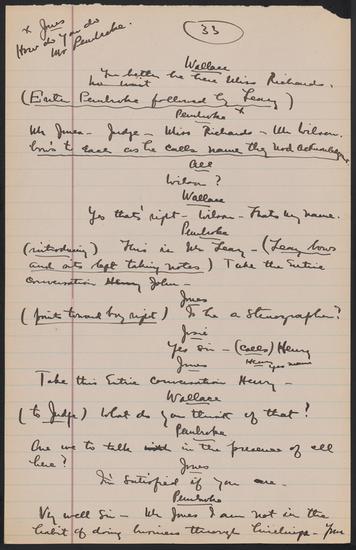 x Jones
How do you do
Mr Pembroke.
33
Wallace
You better be here Miss Richards.
no wait
(Enter Pembroke followed by Leary)
Pembroke x
Mr Jones - Judge - Miss Richards - Mr Wilson.
bows to each as he calls name they nod acknowledge
All
Wilson?
Wallace
Yes that's right - Wilson - That's my name.
Pembroke
(introducing) This is Mr Leary - (Leary bows
and sits left taking notes) Take the Entire
Conversation Henry John -
Jones
(points toward boy right) Is he a Stenographer?
Josie
Yes sir - (calls) Henry
Jones Henry
Take this Entire conversation Henry -
Wallace
(to Judge) What do you think of that?
Pembroke
Are we to talk with in the presence of all
here?
Jones
I'm satisfied if you are -
Pembroke
Very well Sir - Mr Jones I am not in the
habit of doing business through hirelings - You